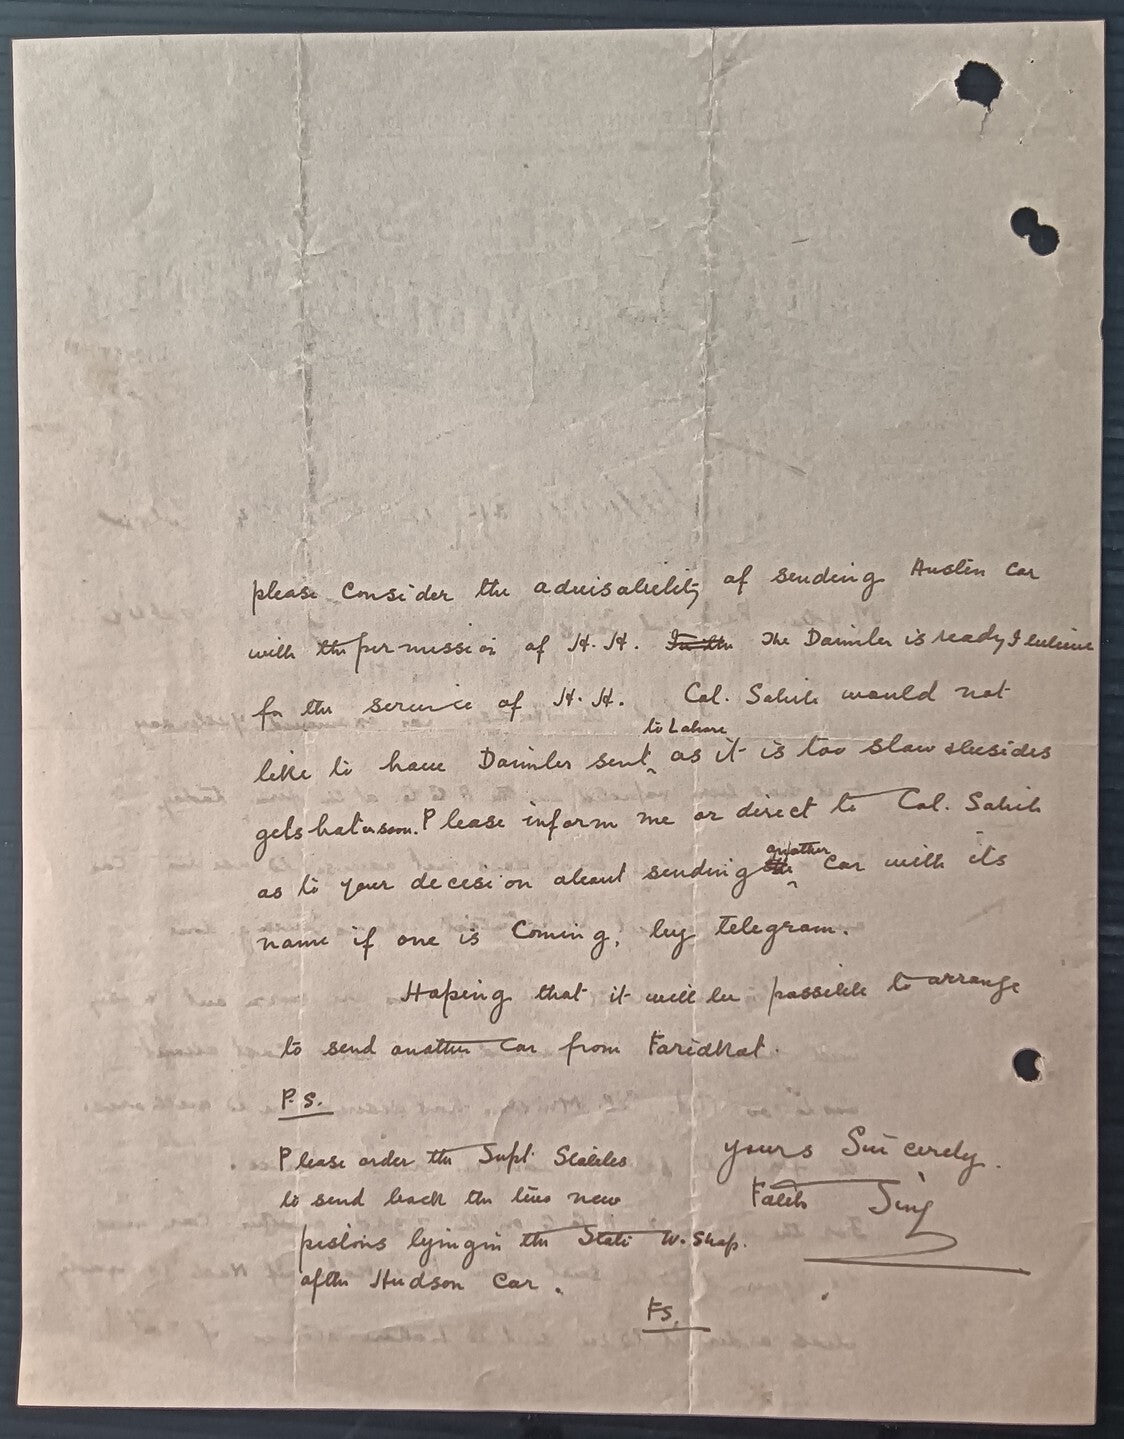 please Consider the advisability of sending Austin Car
with the permission of H.H. The Daimler is ready, I believe
for the service of H.H. Col. Sahib would not
to Lahore
like to have Daimler sent as it is too slow & besides
gets hot soon. Please inform me or direct to Col. Sahib
another
as to your decision about sending the Car with its
name if one is Coming, by telegram.
Hoping that it will be possible to arrange
to send another Car from Faridkot.
P.S.
Please order the Supt. Stables
to send back the two new
pistons lying in the State W. Shop.
of the Hudson Car.
FS.
yours Sincerely.
Fateh Sing